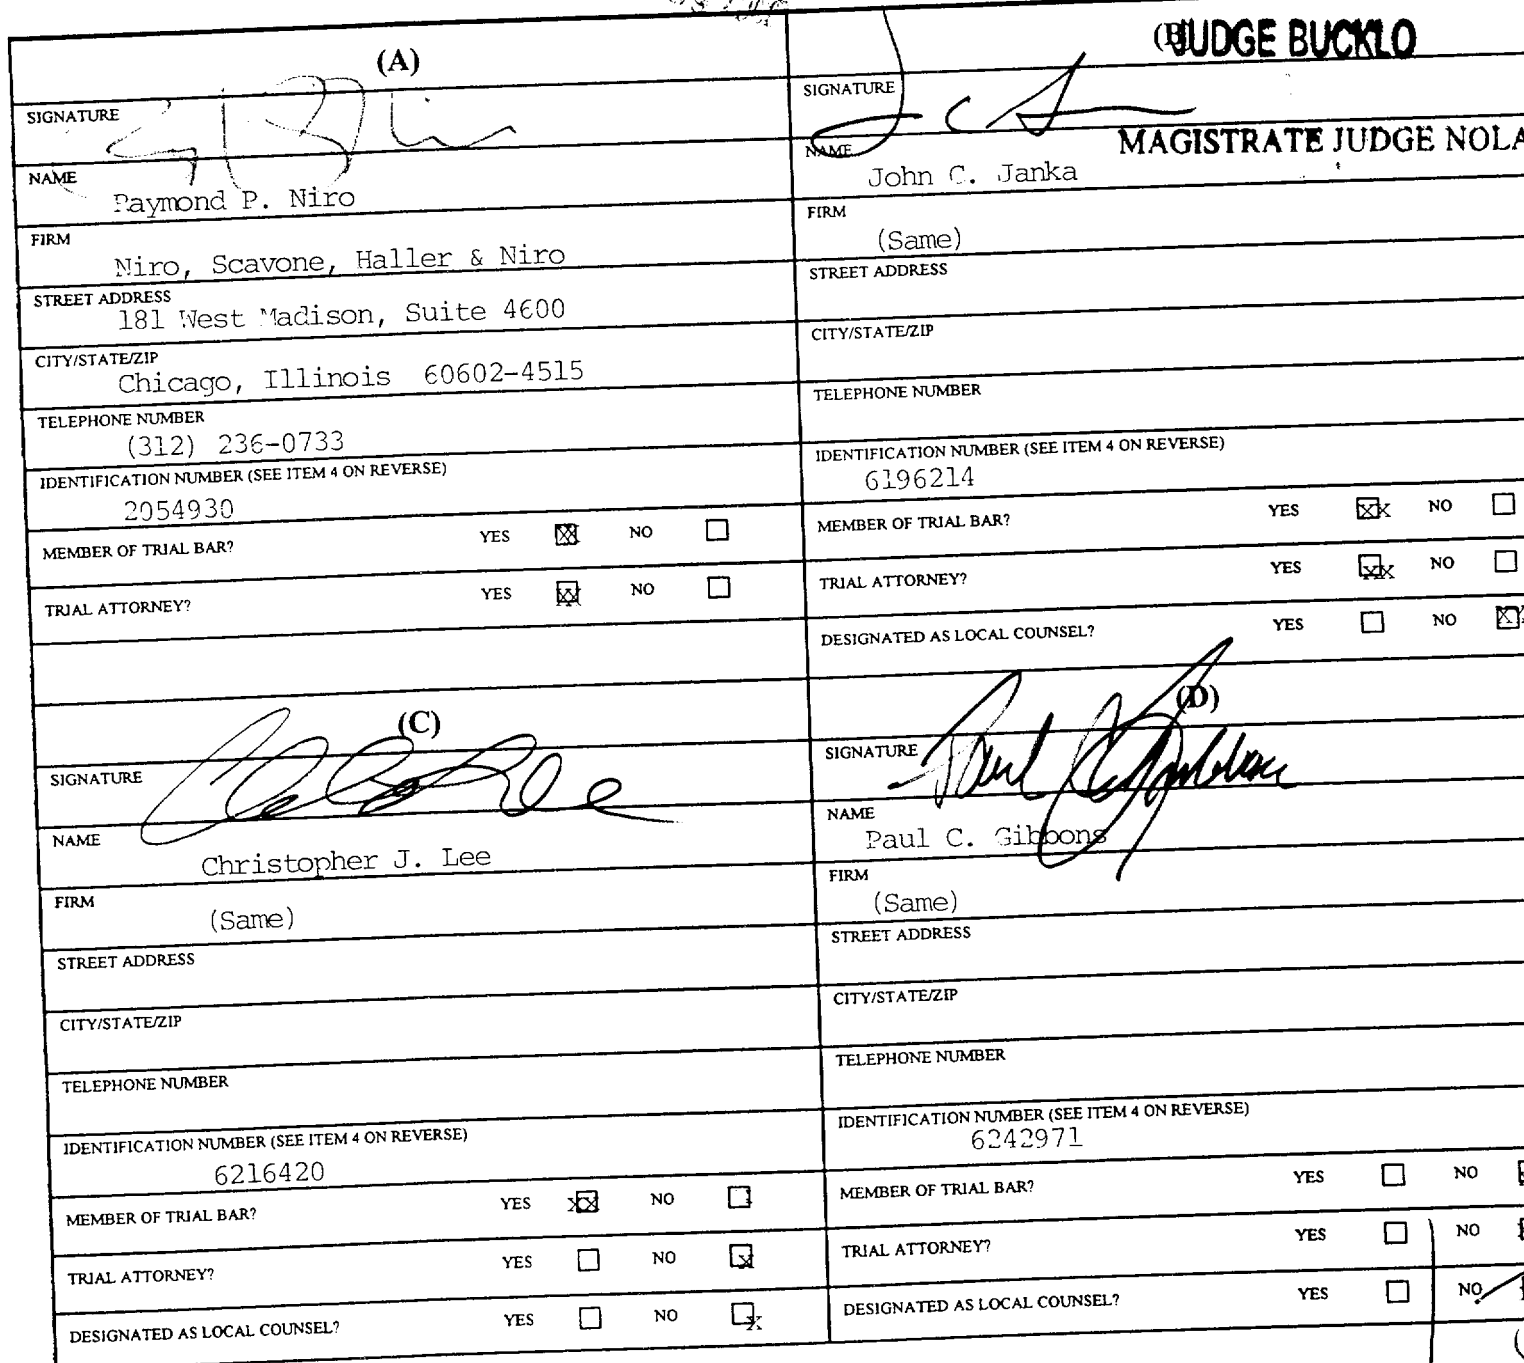 (A)
SIGNATURE
NAME
Raymond P. Niro
FIRM
Niro, Scavone, Haller & Niro
STREET ADDRESS
181 West Madison, Suite 4600
CITY/STATE/ZIP
Chicago, Illinois 60602-4515
TELEPHONE NUMBER
(312) 236-0733
IDENTIFICATION NUMBER (SEE ITEM 4 ON REVERSE)
2054930
MEMBER OF TRIAL BAR? YES XX NO
TRIAL ATTORNEY? YES XX NO
(B) JUDGE BUCKLO
SIGNATURE
MAGISTRATE JUDGE NOLA
NAME
John C. Janka
FIRM
(Same)
STREET ADDRESS
CITY/STATE/ZIP
TELEPHONE NUMBER
IDENTIFICATION NUMBER (SEE ITEM 4 ON REVERSE)
6196214
MEMBER OF TRIAL BAR? YES XX NO
TRIAL ATTORNEY? YES XX NO
DESIGNATED AS LOCAL COUNSEL? YES NO XX
(C)
SIGNATURE
NAME
Christopher J. Lee
FIRM
(Same)
STREET ADDRESS
CITY/STATE/ZIP
TELEPHONE NUMBER
IDENTIFICATION NUMBER (SEE ITEM 4 ON REVERSE)
6216420
MEMBER OF TRIAL BAR? YES XX NO
TRIAL ATTORNEY? YES NO X
DESIGNATED AS LOCAL COUNSEL? YES NO X
(D)
SIGNATURE Paul C. Gibbons
NAME
Paul C. Gibbons
FIRM
(Same)
STREET ADDRESS
CITY/STATE/ZIP
TELEPHONE NUMBER
IDENTIFICATION NUMBER (SEE ITEM 4 ON REVERSE)
6242971
MEMBER OF TRIAL BAR? YES NO
TRIAL ATTORNEY? YES NO
DESIGNATED AS LOCAL COUNSEL? YES NO